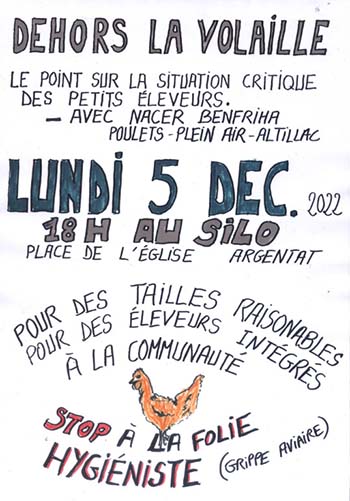 DEHORS LA VOLAILLE
LE POINT SUR LA SITUATION CRITIQUE
DES PETITS ÉLEVEURS.
— AVEC NACER BENFRIHA
POULETS-PLEIN AIR-ALTILLAC
LUNDI 5 DEC. 2022
18H AU SILO
PLACE DE L'ÉGLISE ARGENTAT
POUR DES TAILLES RAISONABLES
POUR DES ÉLEVEURS INTEGRÉS
À LA COMMUNAUTÉ
STOP À LA FOLIE
HYGIÉNISTE (GRIPPE AVIAIRE)